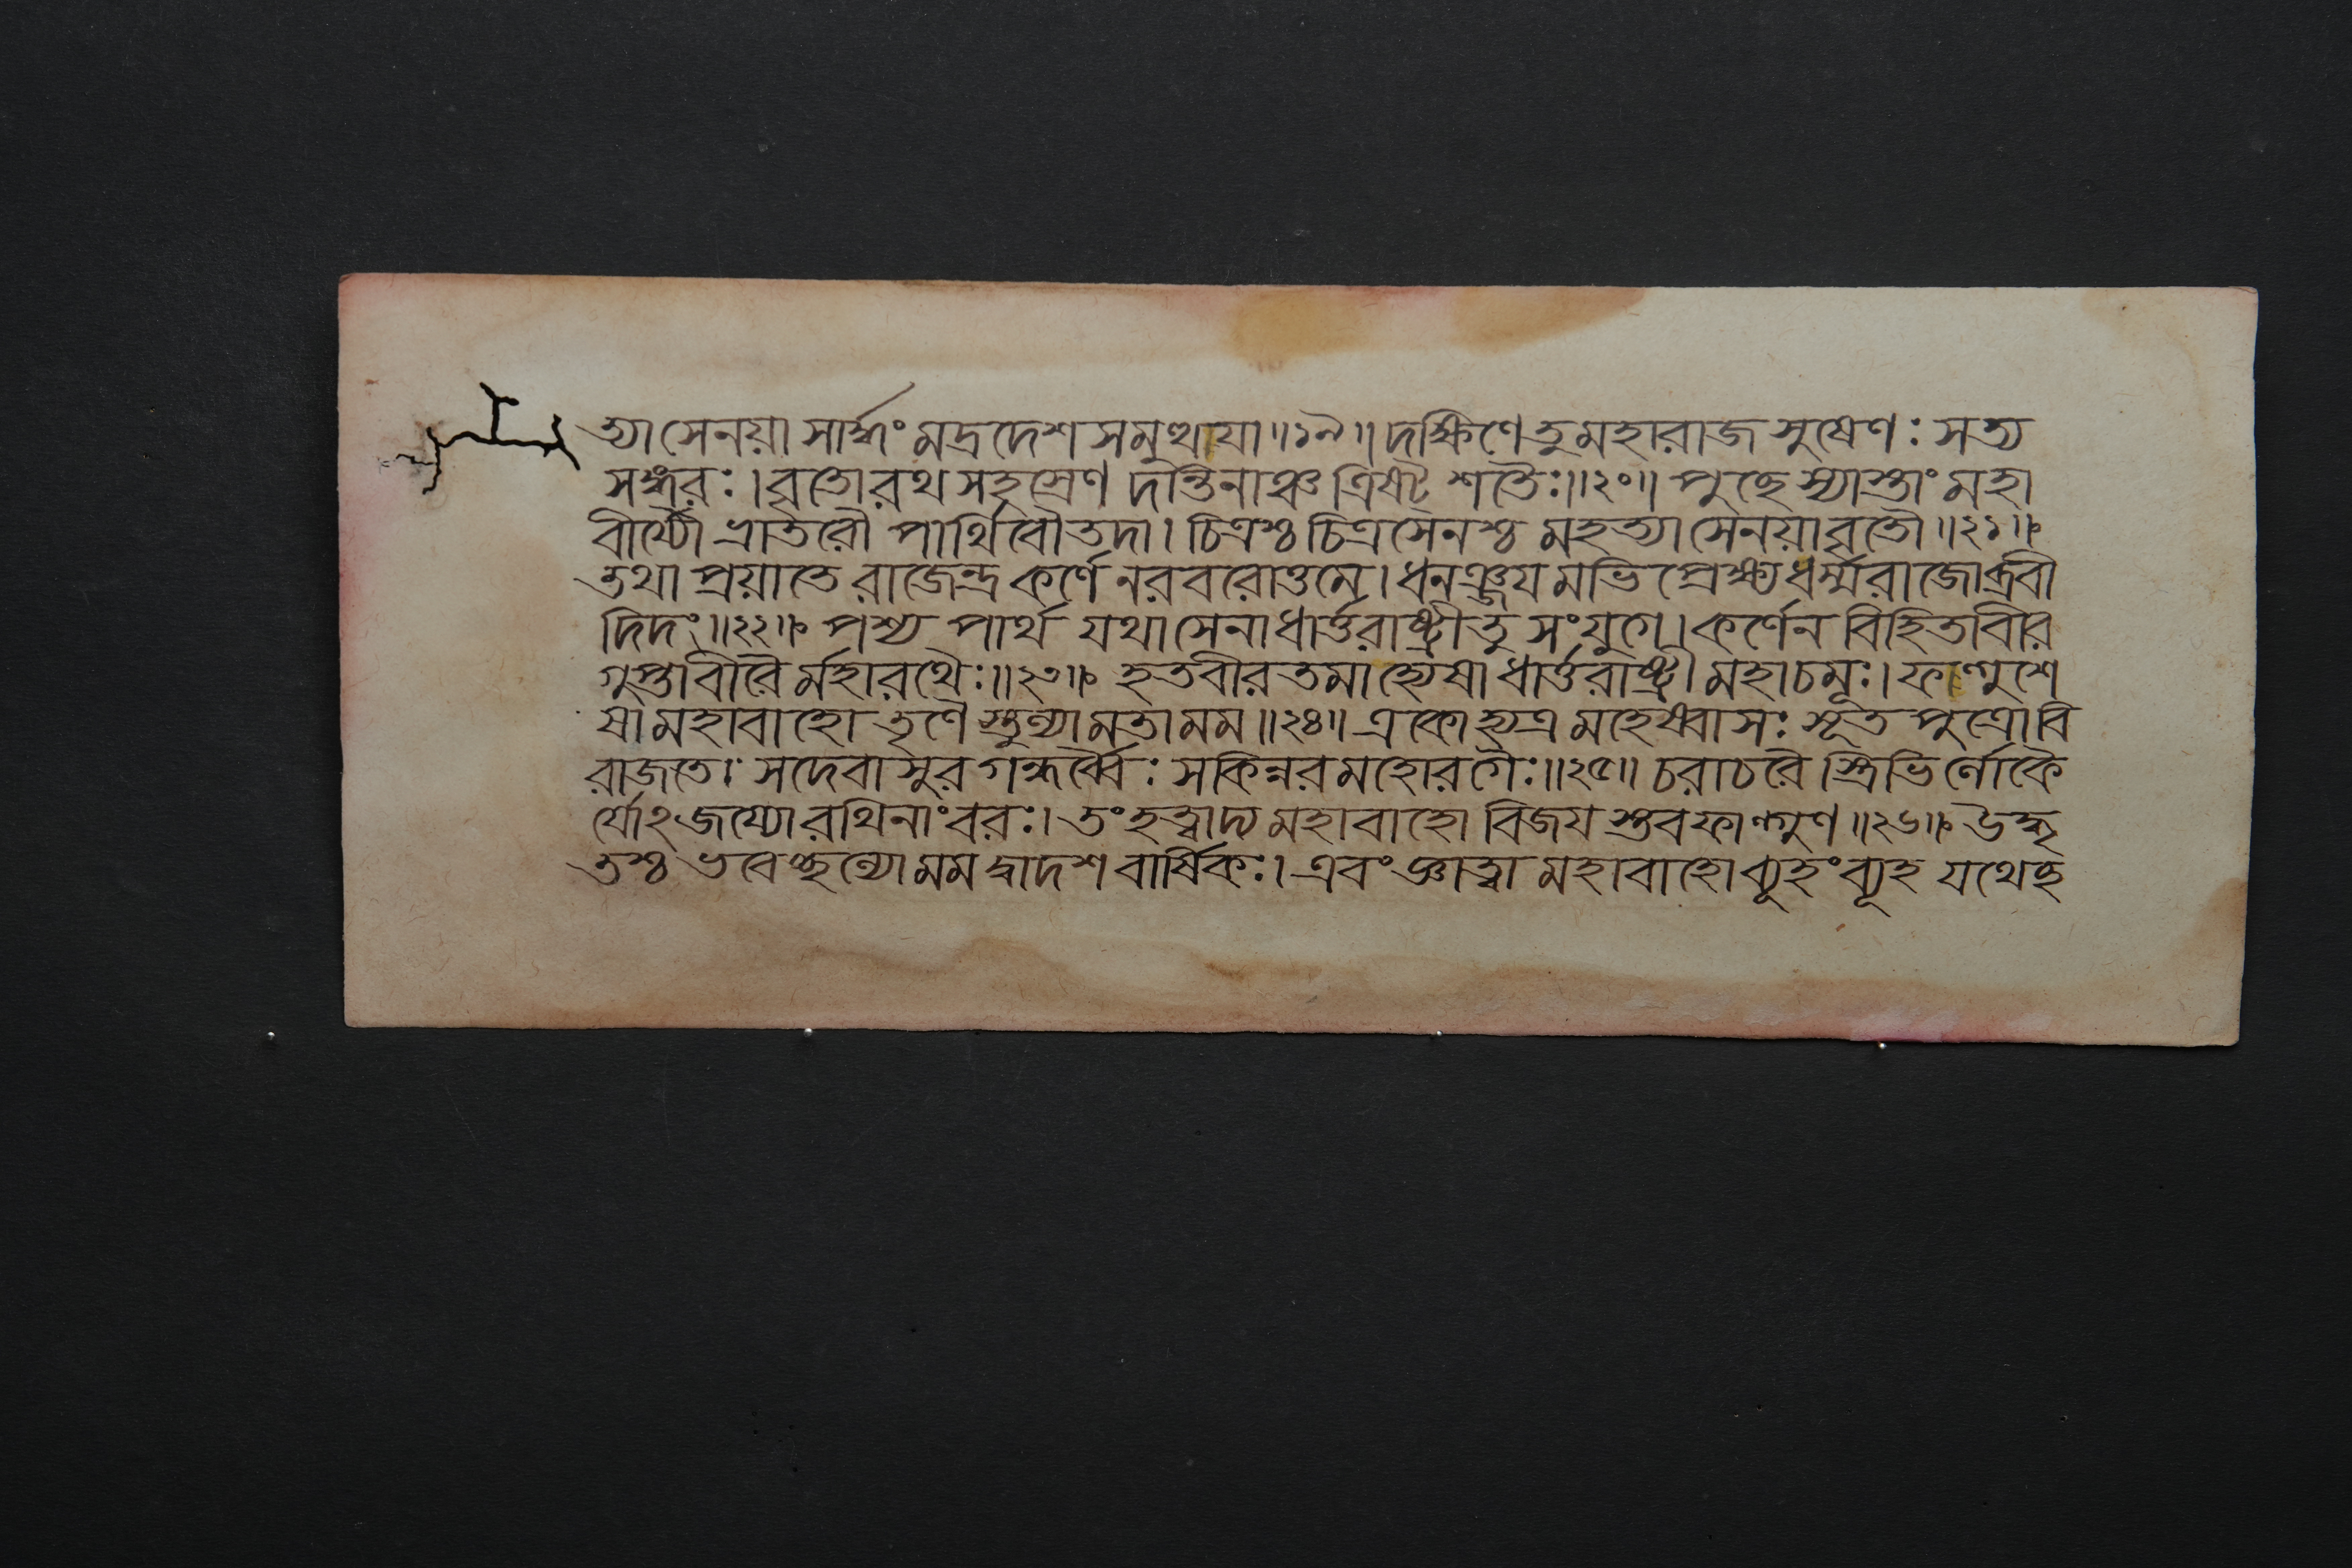 ত্যা সেনয়া সার্দ্ধং মদ্রদেশ সমুত্থায়া॥১৯॥ দক্ষিণে তু মহারাজ সুষেণঃ সত্য
সঙ্গরঃ। বৃতো রথ সহস্রেণ দন্তিনাঞ্চ ত্রিভিঃ শতৈঃ॥২০॥ পুচ্ছে হ্যাস্তাং মহা
বীর্য্যৌ ভ্রাতরৌ পার্থিবৌ তদা। চিত্রশ্চ চিত্রসেনশ্চ মহত্যা সেনয়া বৃতৌ॥২১॥
তথা প্রয়াতে রাজেন্দ্র কর্ণে নরবরোত্তমে। ধনঞ্জয় মভি প্রেক্ষ্য ধর্ম্মরাজোব্রবী
দিদং॥২২॥ পশ্য পার্থ যথা সেনা ধার্ত্তরাষ্ট্রী তু সংযুগে। কর্ণেন বিহিত বীর
গুপ্তা বীরৈ র্মহারথৈঃ॥২৩॥ হতবীরতমা হ্যেষা ধার্ত্তরাষ্ট্রী মহাচমূঃ। ফল্গুশে
ষা মহাবাহো তৃণৈ স্তুল্যা মতা মম॥২৪॥ একো হ্যত্র মহেষ্বাসঃ সূত পুত্রো বি
রাজতে। সদেবাসুর গন্ধর্ব্বৈঃ সকিন্নর মহোরগৈঃ॥২৫॥ চরাচরৈ স্ত্রিভি র্লোকৈ
র্যোঽজয্যো রথিনাং বরঃ। তং হত্বাদ্য মহাবাহো বিজয় স্তব ফাল্গুণ॥২৬॥ উদ্ধৃ
তশ্চ ভবেচ্ছল্যো মম দ্বাদশ বার্ষিকঃ। এবং জ্ঞাত্বা মহাবাহো ব্যূহং ব্যূহ যথেচ্ছ